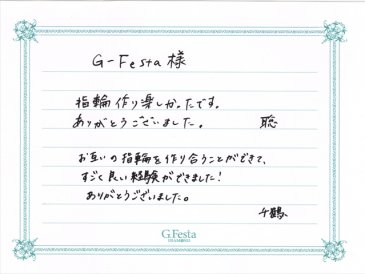 G-Festa 様
指輪作り楽しかったです。
ありがとうございました。 聡
お互いの指輪を作り合うことができて、
すごく良い経験ができました!
ありがとうございました。
千鶴
G.Festa